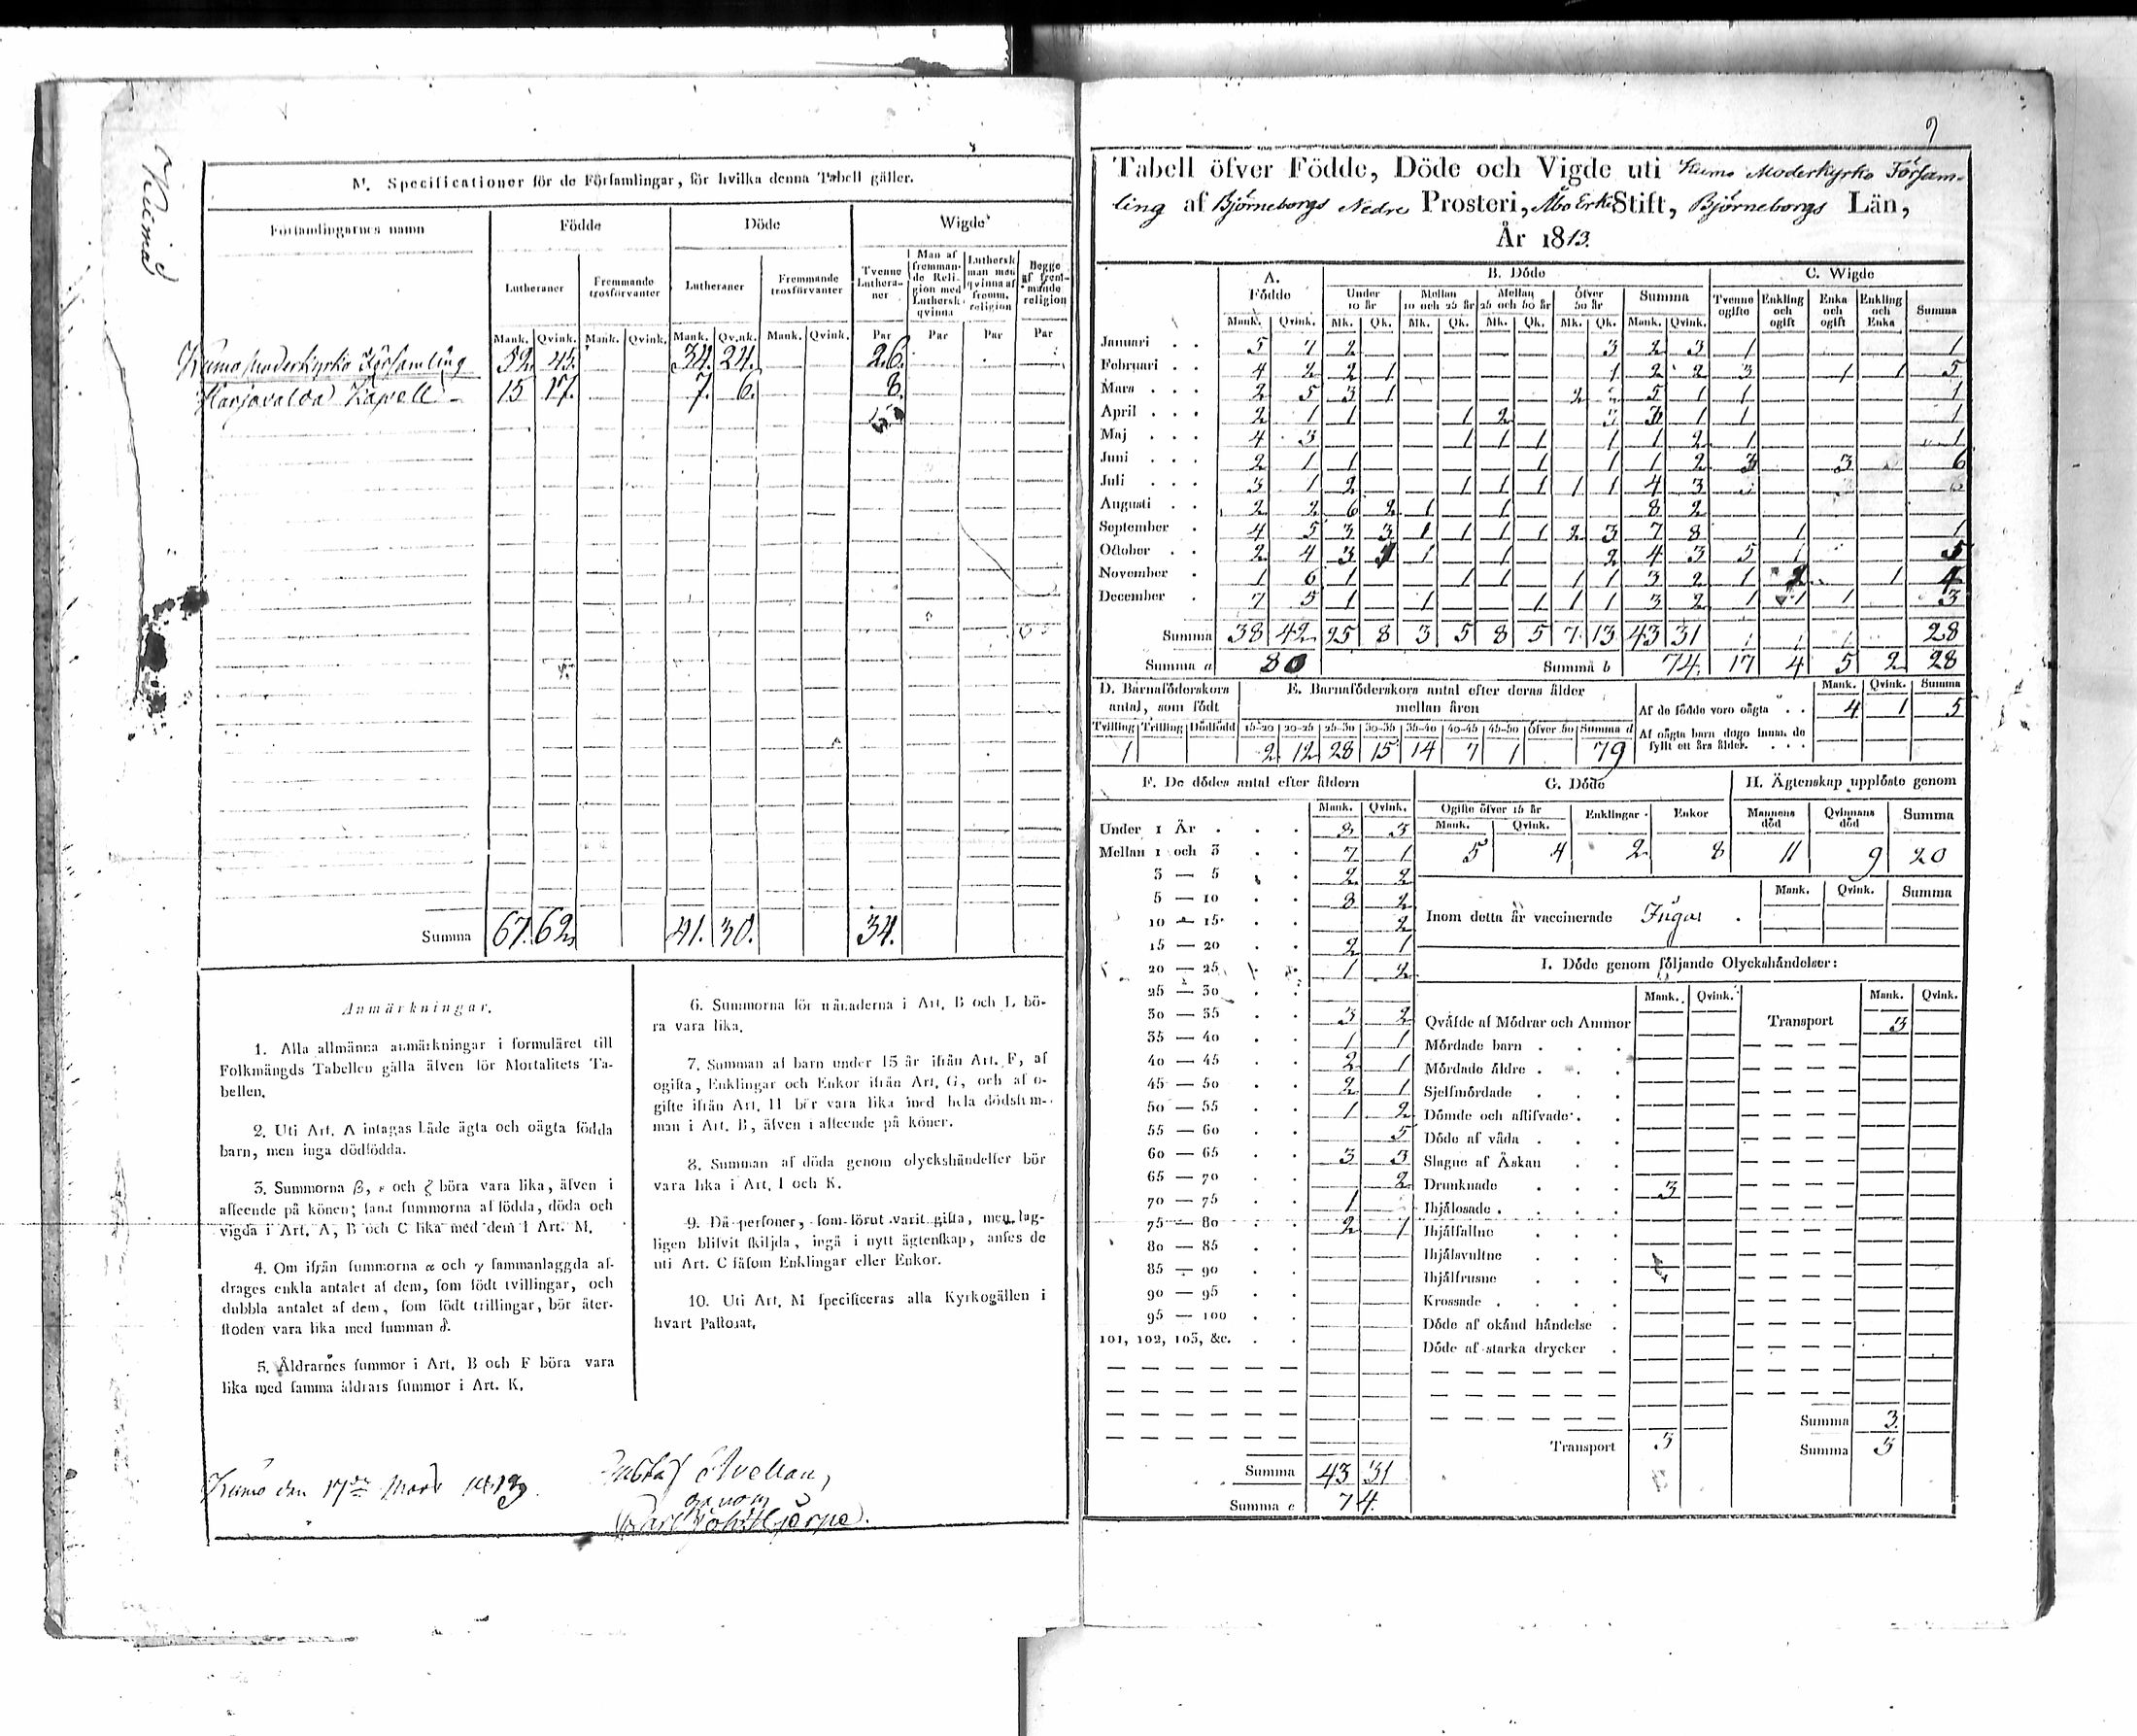 Kumo
M. Specificationer för de Församlingar, för hvilka denna Tabell gäller.
Församlingarnes namn Födde Döde Wigde
Lutheraner Fremmande trosförvanter Lutheraner Fremmande trosförvanter Tvenne Lutheraner Man af fremmande Religion med Luthersk qvinna Luthersk man med qvinna af fremm. religion Begge af fremmande religion
Mank. Qvink. Mank. Qvink. Mank. Qvink. Mank. Qvink. Par Par Par Par
Kumo Moderkyrko Församling 52. 45. 34. 24. 26.
Harjavalda Kapell 15 17. 7. 6. 8.
Summa 67. 62. 41. 30. 34.
Anmärkningar.
1. Alla allmänna anmärkningar i formuläret till
Folkmängds Tabellen gälla älven för Mortalitets Ta-
bellen.
2. Uti Art. A intagas både ägta och oägta födda
barn, men inga dödfödda.
3. Summorna β, ε och ζ böra vara lika, älven i
afseende på könen; samt summorna af födda, döda och
vigda i Art. A, B och C lika med dem i Art. M.
4. Om ifrån summorna α och γ sammanlaggda af-
drages enkla antalet af dem, som födt tvillingar, och
dubbla antalet af dem, som födt trillingar, bör åter-
stoden vara lika med summan δ.
5. Åldrarnes summor i Art. B och F böra vara
lika med samma åldrars summor i Art. K.
6. Summorna för månaderna i Art. B och L bö-
ra vara lika.
7. Summan af barn under 15 år ifrån Art. F, af
ogifta, Enklingar och Enkor ifrån Art. G, och af o-
gifte ifrån Art. H bör vara lika med hela dödssum-
man i Art. B, älven i afseende på köner.
8. Summan af döda genom olyckshändelser bör
vara lika i Art. I och K.
9. Då personer, som förut varit gifta, men lag-
ligen blifvit skiljda, ingå i nytt ägtenskap, anses de
uti Art. C såsom Enklingar eller Enkor.
10. Uti Art. M specificeras alla Kyrkogällen i
hvart Pastorat.
Kumo den 17de Mars
Gustaf Avellan,
genom
Carl Joh. Hjerpe.
Tabell öfver Födde, Döde och Vigde uti Kumo Moderkyrko Försam-
ling af Björneborgs Nedre Prosteri, Åbo Erke Stift, Björneborgs Län,
År 1813.
A. Födde B. Döde C. Wigde
Under 10 år Mellan 10 och 25 år Mellan 25 och 50 år öfver 50 år Summa Tvenne ogifte Enkling och ogift Enka och ogift Enkling och Enka Summa
Mank. Qvink. Mk. Qk. Mk. Qk. Mk. Qk. Mk. Qk. Mank. Qvink.
Januari 5 7 2 3 2 3 1 1
Februari 4 2 2 1 1 2 2 3 1 1 5
Mars 2 5 3 1 2 5 1 1 1
April 2 1 1 1 2 3 1 1 1
Maj 4 3 1 1 1 1 1 2 1 1
Juni 2 1 1 1 1 1 2 3 3 6
Juli 3 1 2 1 1 1 1 1 4 3
Augusti 2 2 6 2 1 1 8 2
September 4 5 3 3 1 1 1 1 2 3 7 8 1 1
October 2 4 3 1 1 1 2 4 3 5 5
November 1 6 1 1 1 1 1 3 2 1 2 1 4
December 7 5 1 1 1 1 1 3 2 1 1 1 3
Summa 38 42 25 8 3 5 8 5 7 13 43 31 28
Summa a 80 Summa b 74. 17 4 5 2 28
D. Barnaföderskors antal, som födt
Tvilling Trilling Dödfödd
1
E. Barnaföderskors antal efter deras ålder mellan åren
15-20 20-25 25-30 30-35 35-40 40-45 45-50 öfver 50 Summa d
2 12 28 15 14 7 1 79
Mank. Qvink. Summa
Af de födde voro oägta 4 1 5
Af oägta barn dogo innan de fyllt ett års ålder.
F. De dödes antal efter åldern
Mank. Qvink.
Under 1 År 8 3
Mellan 1 och 3 7 1
3 — 5 2 2
5 — 10 8 2
10 — 15 2
15 — 20 2 1
20 — 25 1 2
25 — 30
30 — 35 3 2
35 — 40 1 1
40 — 45 2 1
45 — 50 2 1
50 — 55 1 2
55 — 60 5
60 — 65 3 3
65 — 70 2
70 — 75 1
75 — 80 2 1
80 — 85
85 — 90
90 — 95
95 — 100
101, 102, 103, &c.
Summa 43 31
Summa c 74.
G. Döde
Ogifte öfver 15 år Enklingar Enkor
Mank. Qvink.
5 4 2 8
H. Ägtenskap upplöste genom
Mannens död Qvinnans död Summa
11 9 20
Mank. Qvink. Summa
Inom detta år vaccinerade Inga
I. Döde genom följande Olyckshändelser:
Mank. Qvink. Mank. Qvink.
Qväfde af Mödrar och Ammor Transport 3
Mördade barn
Mördade äldre
Sjelfmördade
Dömde och aflifvade
Döde af våda
Slagne af Åskan
Drunknade 3
Ihjälosade
Ihjälfallne
Ihjälsvultne
Ihjälfrusne
Krossade
Döde af okänd händelse
Döde af starka drycker
Summa 3.
Transport 3 Summa 3